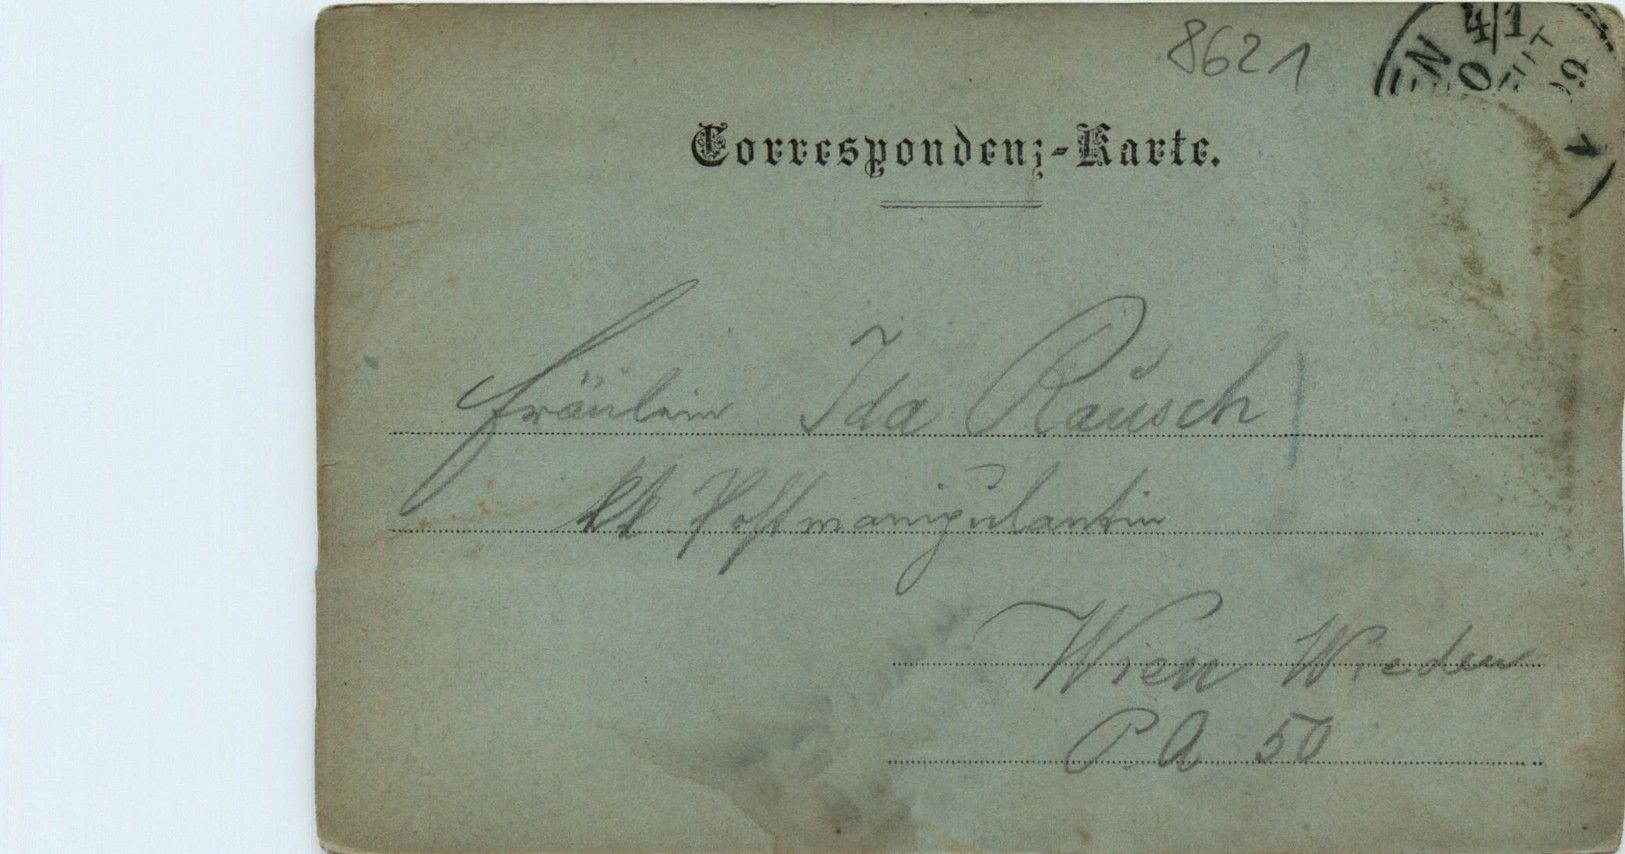 8621
4/1
Correspondenz-Karte.
Fräulein Ida Rausch
kk Postmanipulantin
Wien Wieden
P. A 50